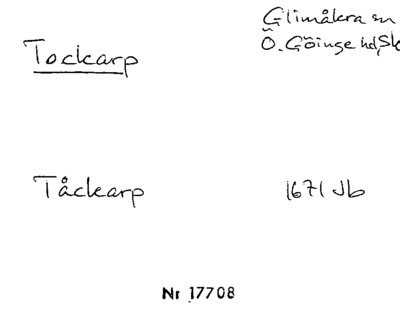 Glimåkra sn
Tockarp
Ö. Göinge hd, Sk
Tåckarp 1671 Jb
Nr 17708